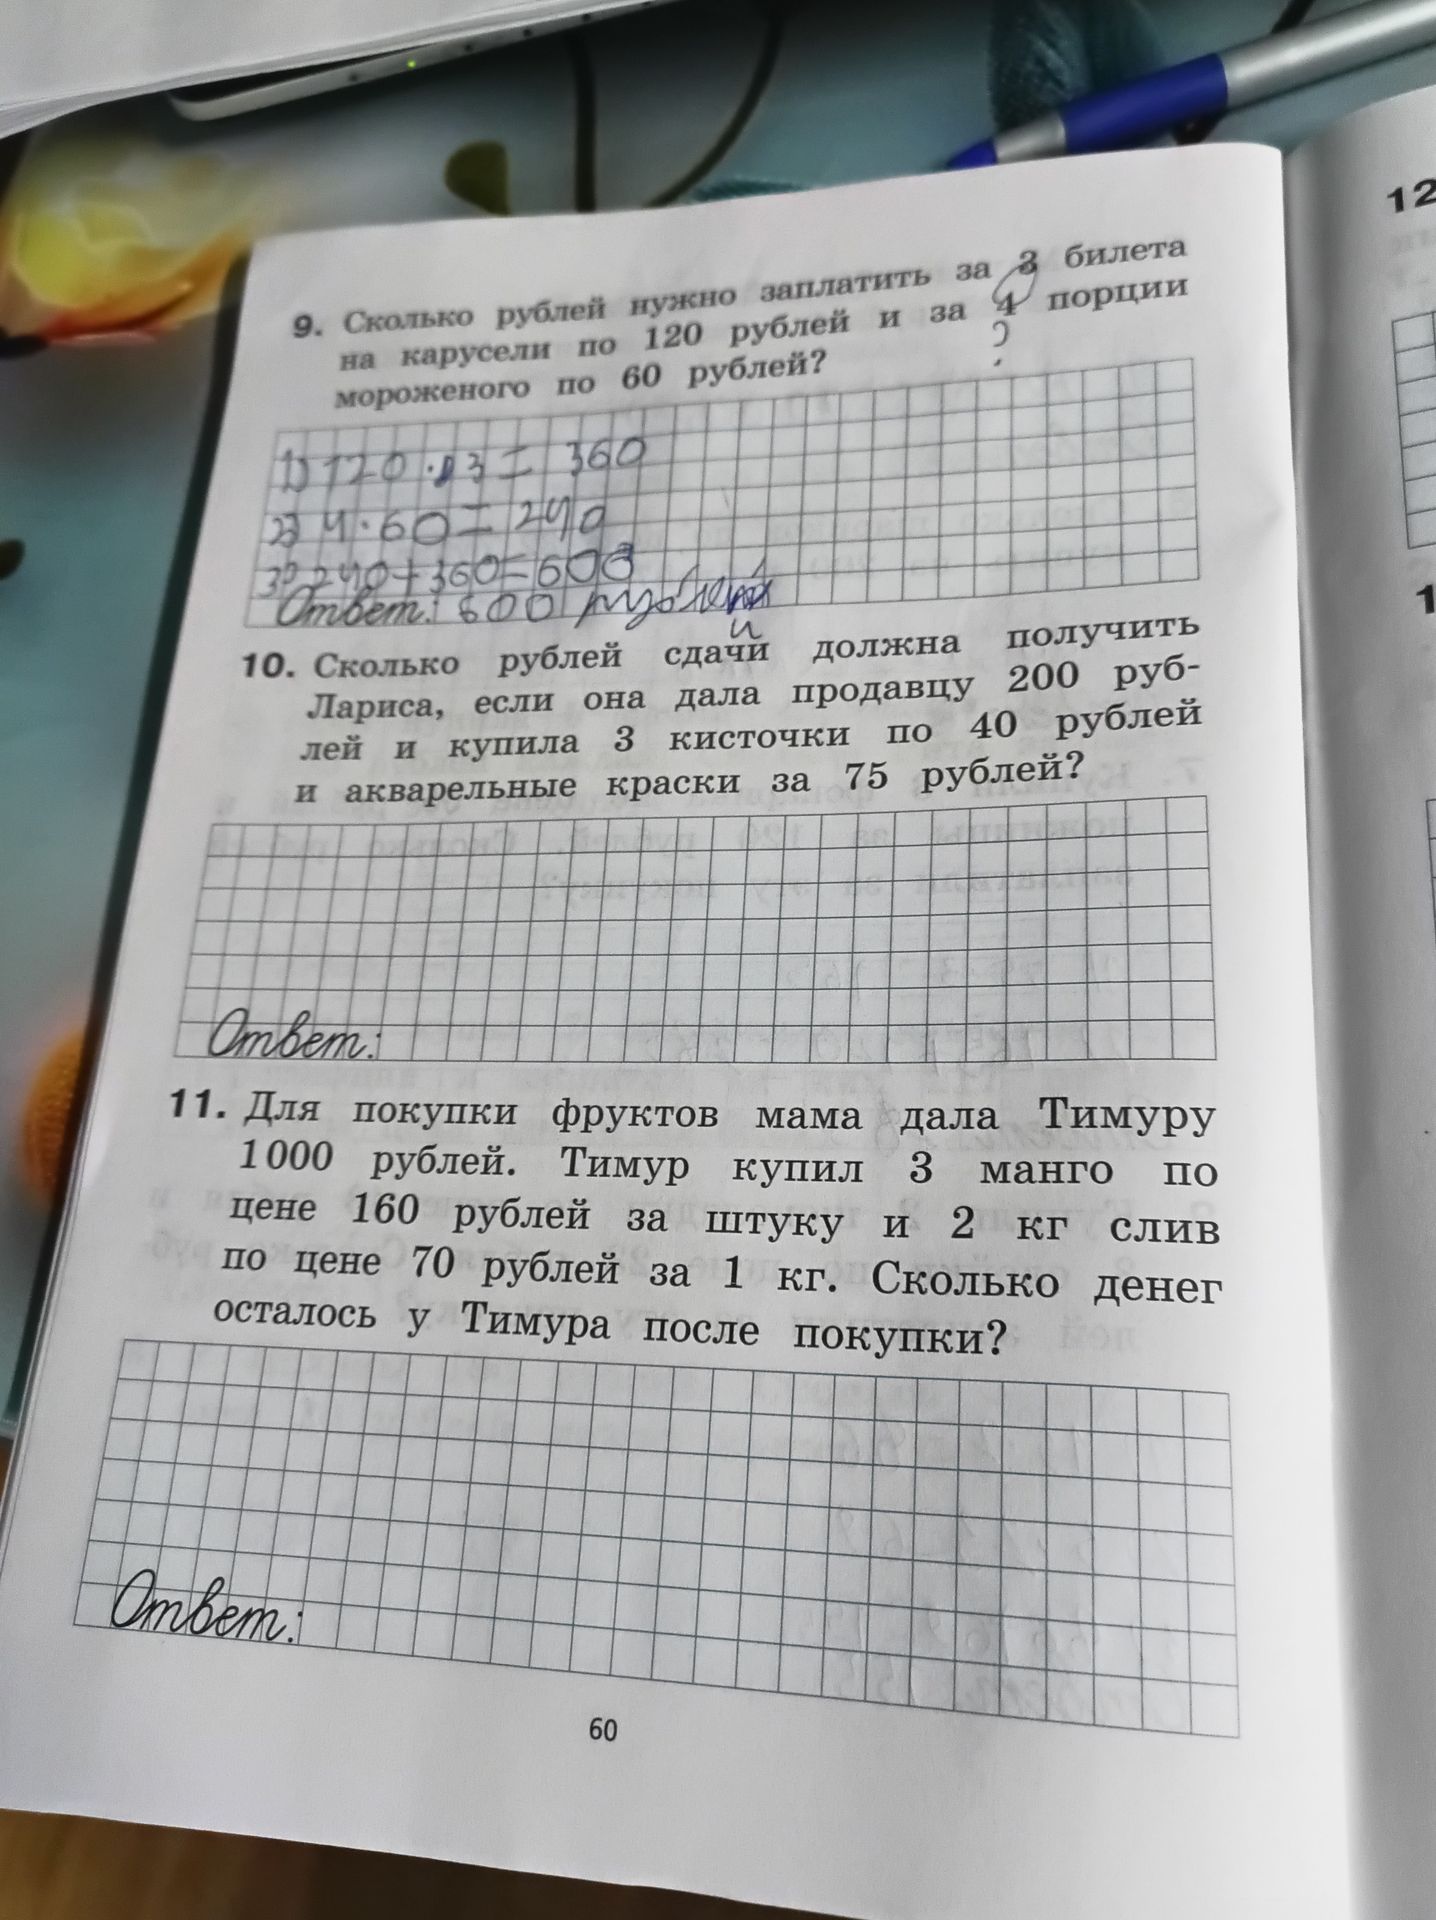 12
9. Сколько рублей нужно заплатить за 3 билета
на карусели по 120 рублей и за 4 порции
мороженого по 60 рублей?
?
1) 120 · 3 = 360
2) 4 · 60 = 240
3) 240 + 360 = 600
Ответ: 600 рублей
й
10. Сколько рублей сдачи должна получить
Лариса, если она дала продавцу 200 руб-
лей и купила 3 кисточки по 40 рублей
и акварельные краски за 75 рублей?
Ответ:
11. Для покупки фруктов мама дала Тимуру
1000 рублей. Тимур купил 3 манго по
цене 160 рублей за штуку и 2 кг слив
по цене 70 рублей за 1 кг. Сколько денег
осталось у Тимура после покупки?
Ответ:
60
1